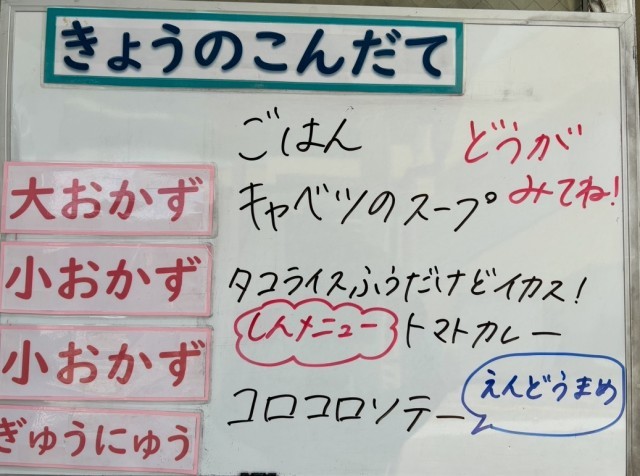 きょうのこんだて
ごはん
どうが
みてね!
大おかず
キャベツのスープ
小おかず
タコライスふうだけどイカス!
しんメニュー トマトカレー
小おかず
コロコロソテー
えんどうまめ
ぎゅうにゅう